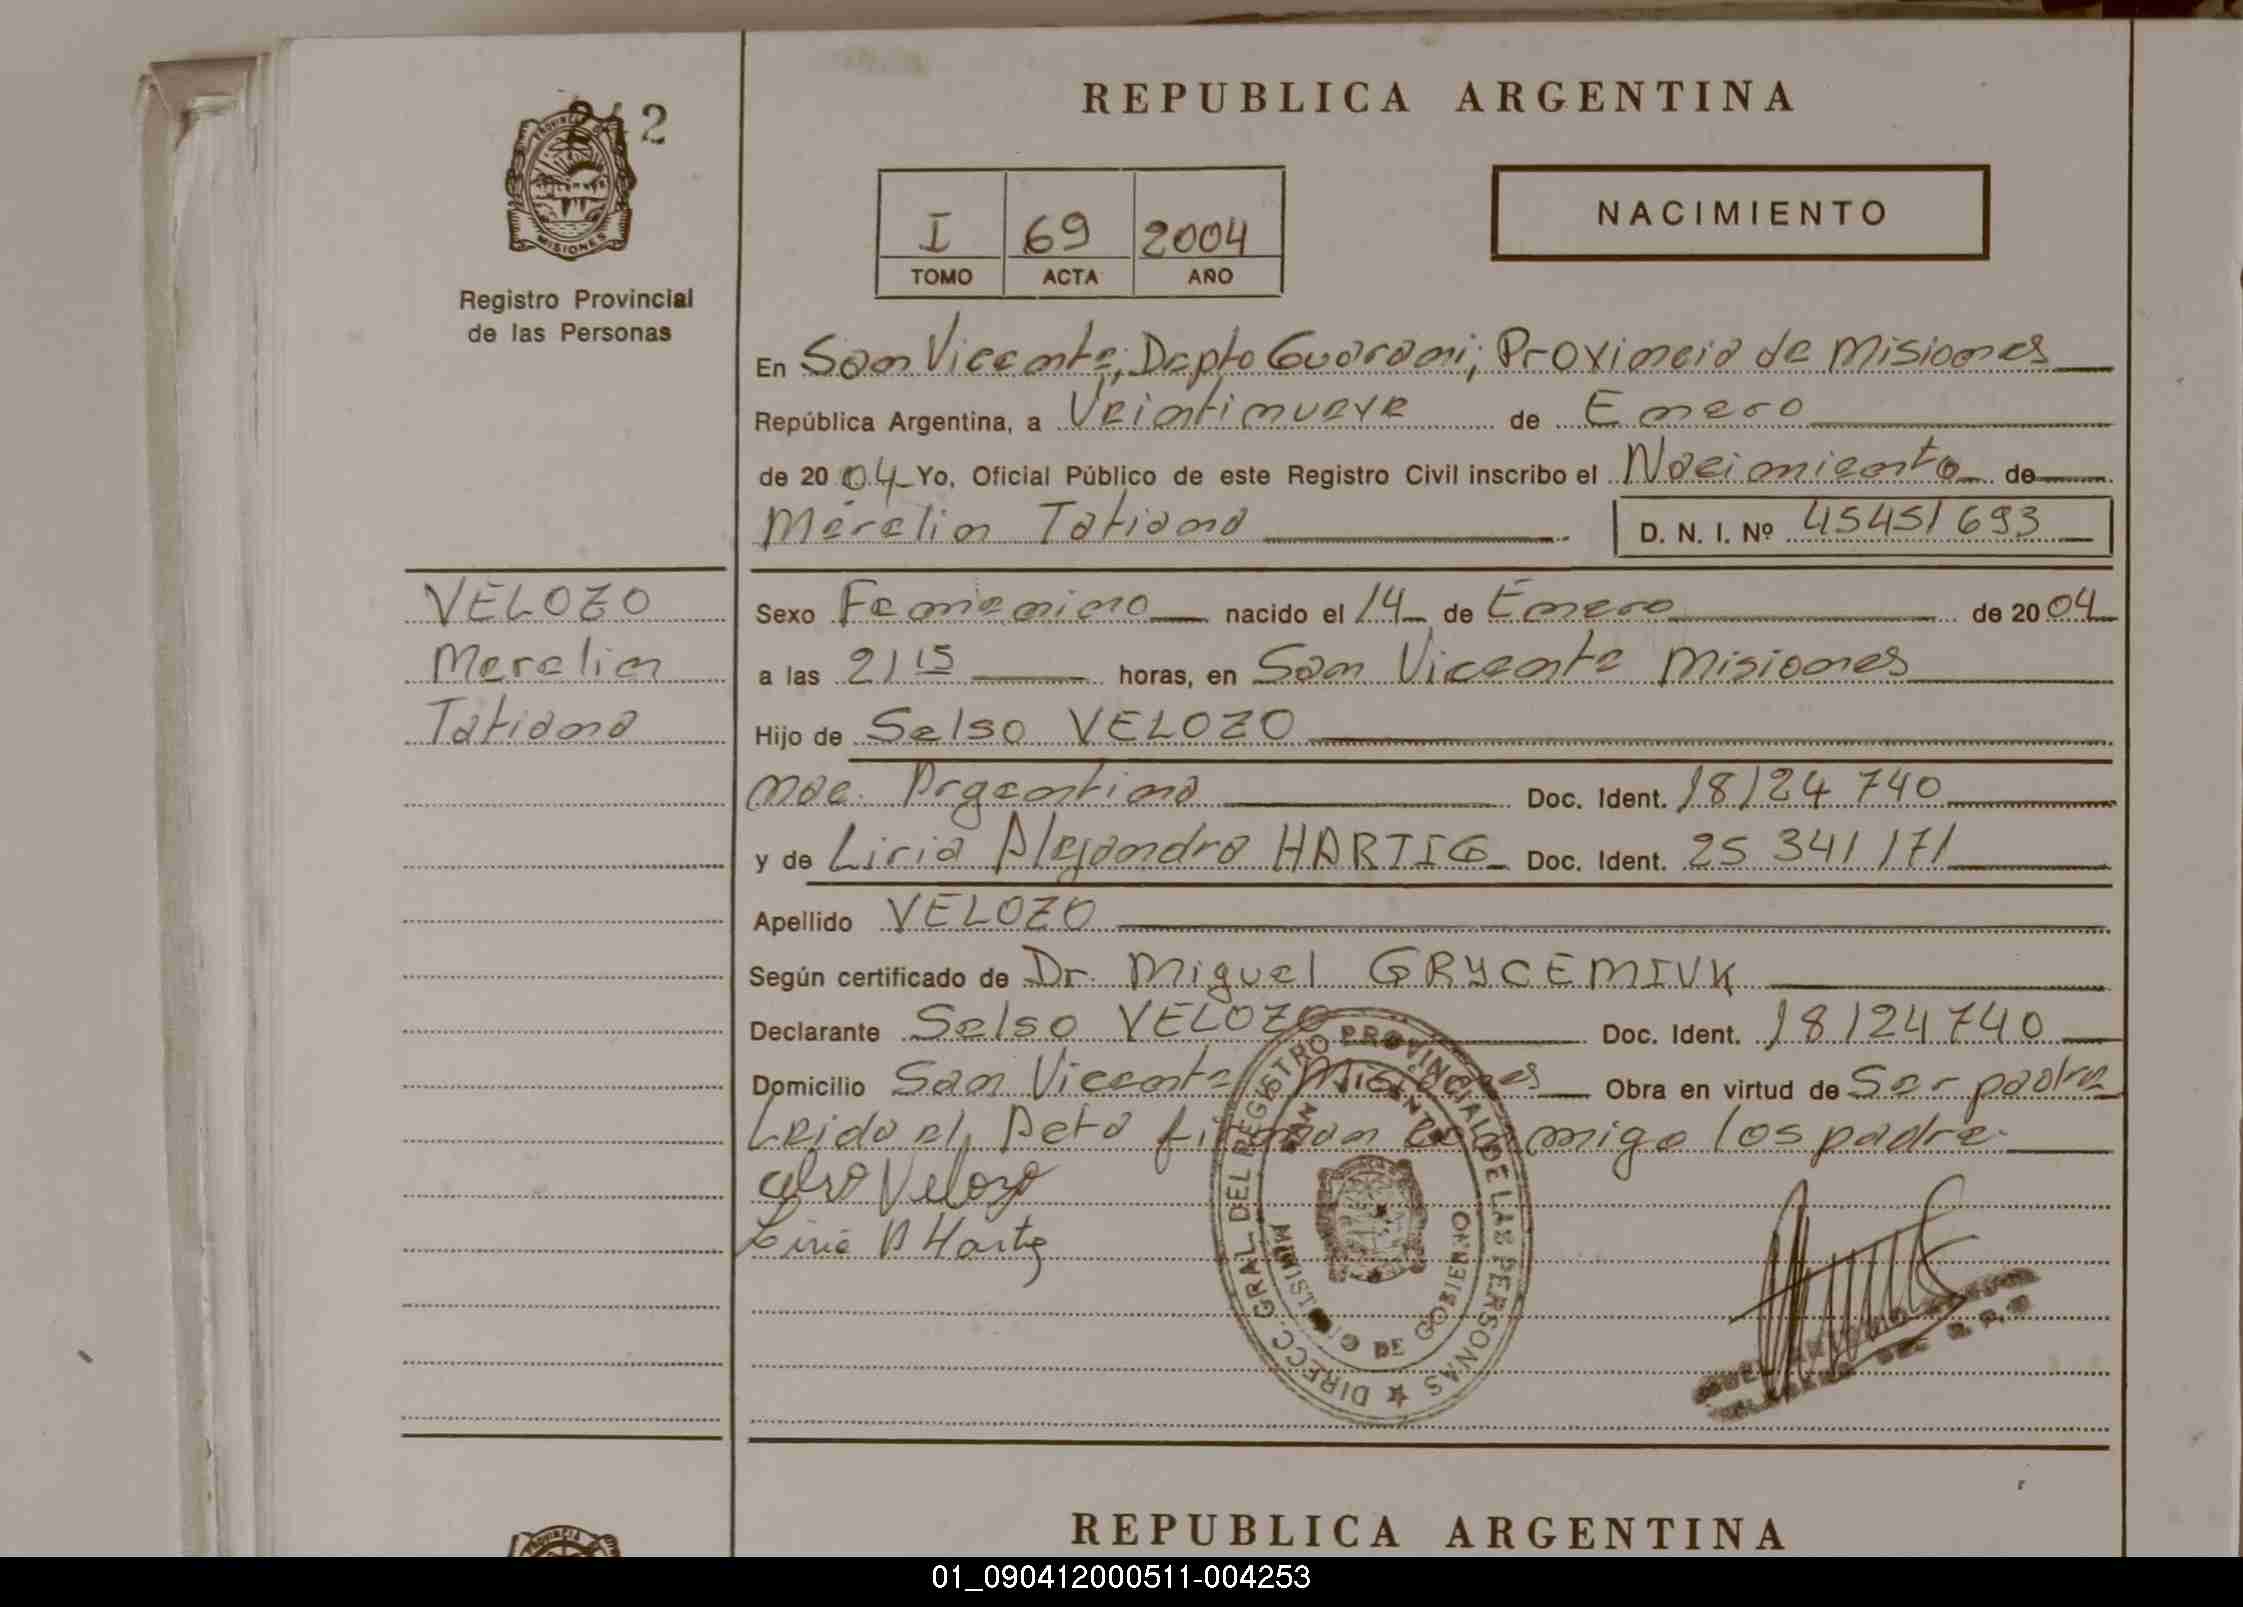 242
PROVINCIA DE
MISIONES
Registro Provincial
de las Personas
REPUBLICA ARGENTINA
I 69 2004
TOMO ACTA AÑO
NACIMIENTO
En San Vicente, Depto Guarani; Provincia de Misiones
República Argentina, a Veintinueve de Enero
de 2004 Yo, Oficial Público de este Registro Civil inscribo el Nacimiento de
Merelin Tatiana D. N. I. Nº 45451693
VELOZO
Merelin
Tatiana
Sexo Femenino nacido el 14 de Enero de 2004
a las 21 15 horas, en San Vicente Misiones
Hijo de Selso VELOZO
nac. Argentina Doc. Ident. 18124740
y de Liria Alejandra HARTIG Doc. Ident. 25 341 171
Apellido VELOZO
Según certificado de Dr. Miguel GRYCENIUK
Declarante Selso VELOZO Doc. Ident. 18124740
Domicilio San Vicente Misiones Obra en virtud de Ser padre
Leido el Acta firman conmigo los padre.
Celso Velozo
Liria A Hartig
DIRECC. GRAL. DEL REGISTRO PROVINCIAL DE LAS PERSONAS
SAN VICENTE
MINISTERIO DE GOBIERNO
REPUBLICA ARGENTINA
PROVINCIA
01_090412000511-004253